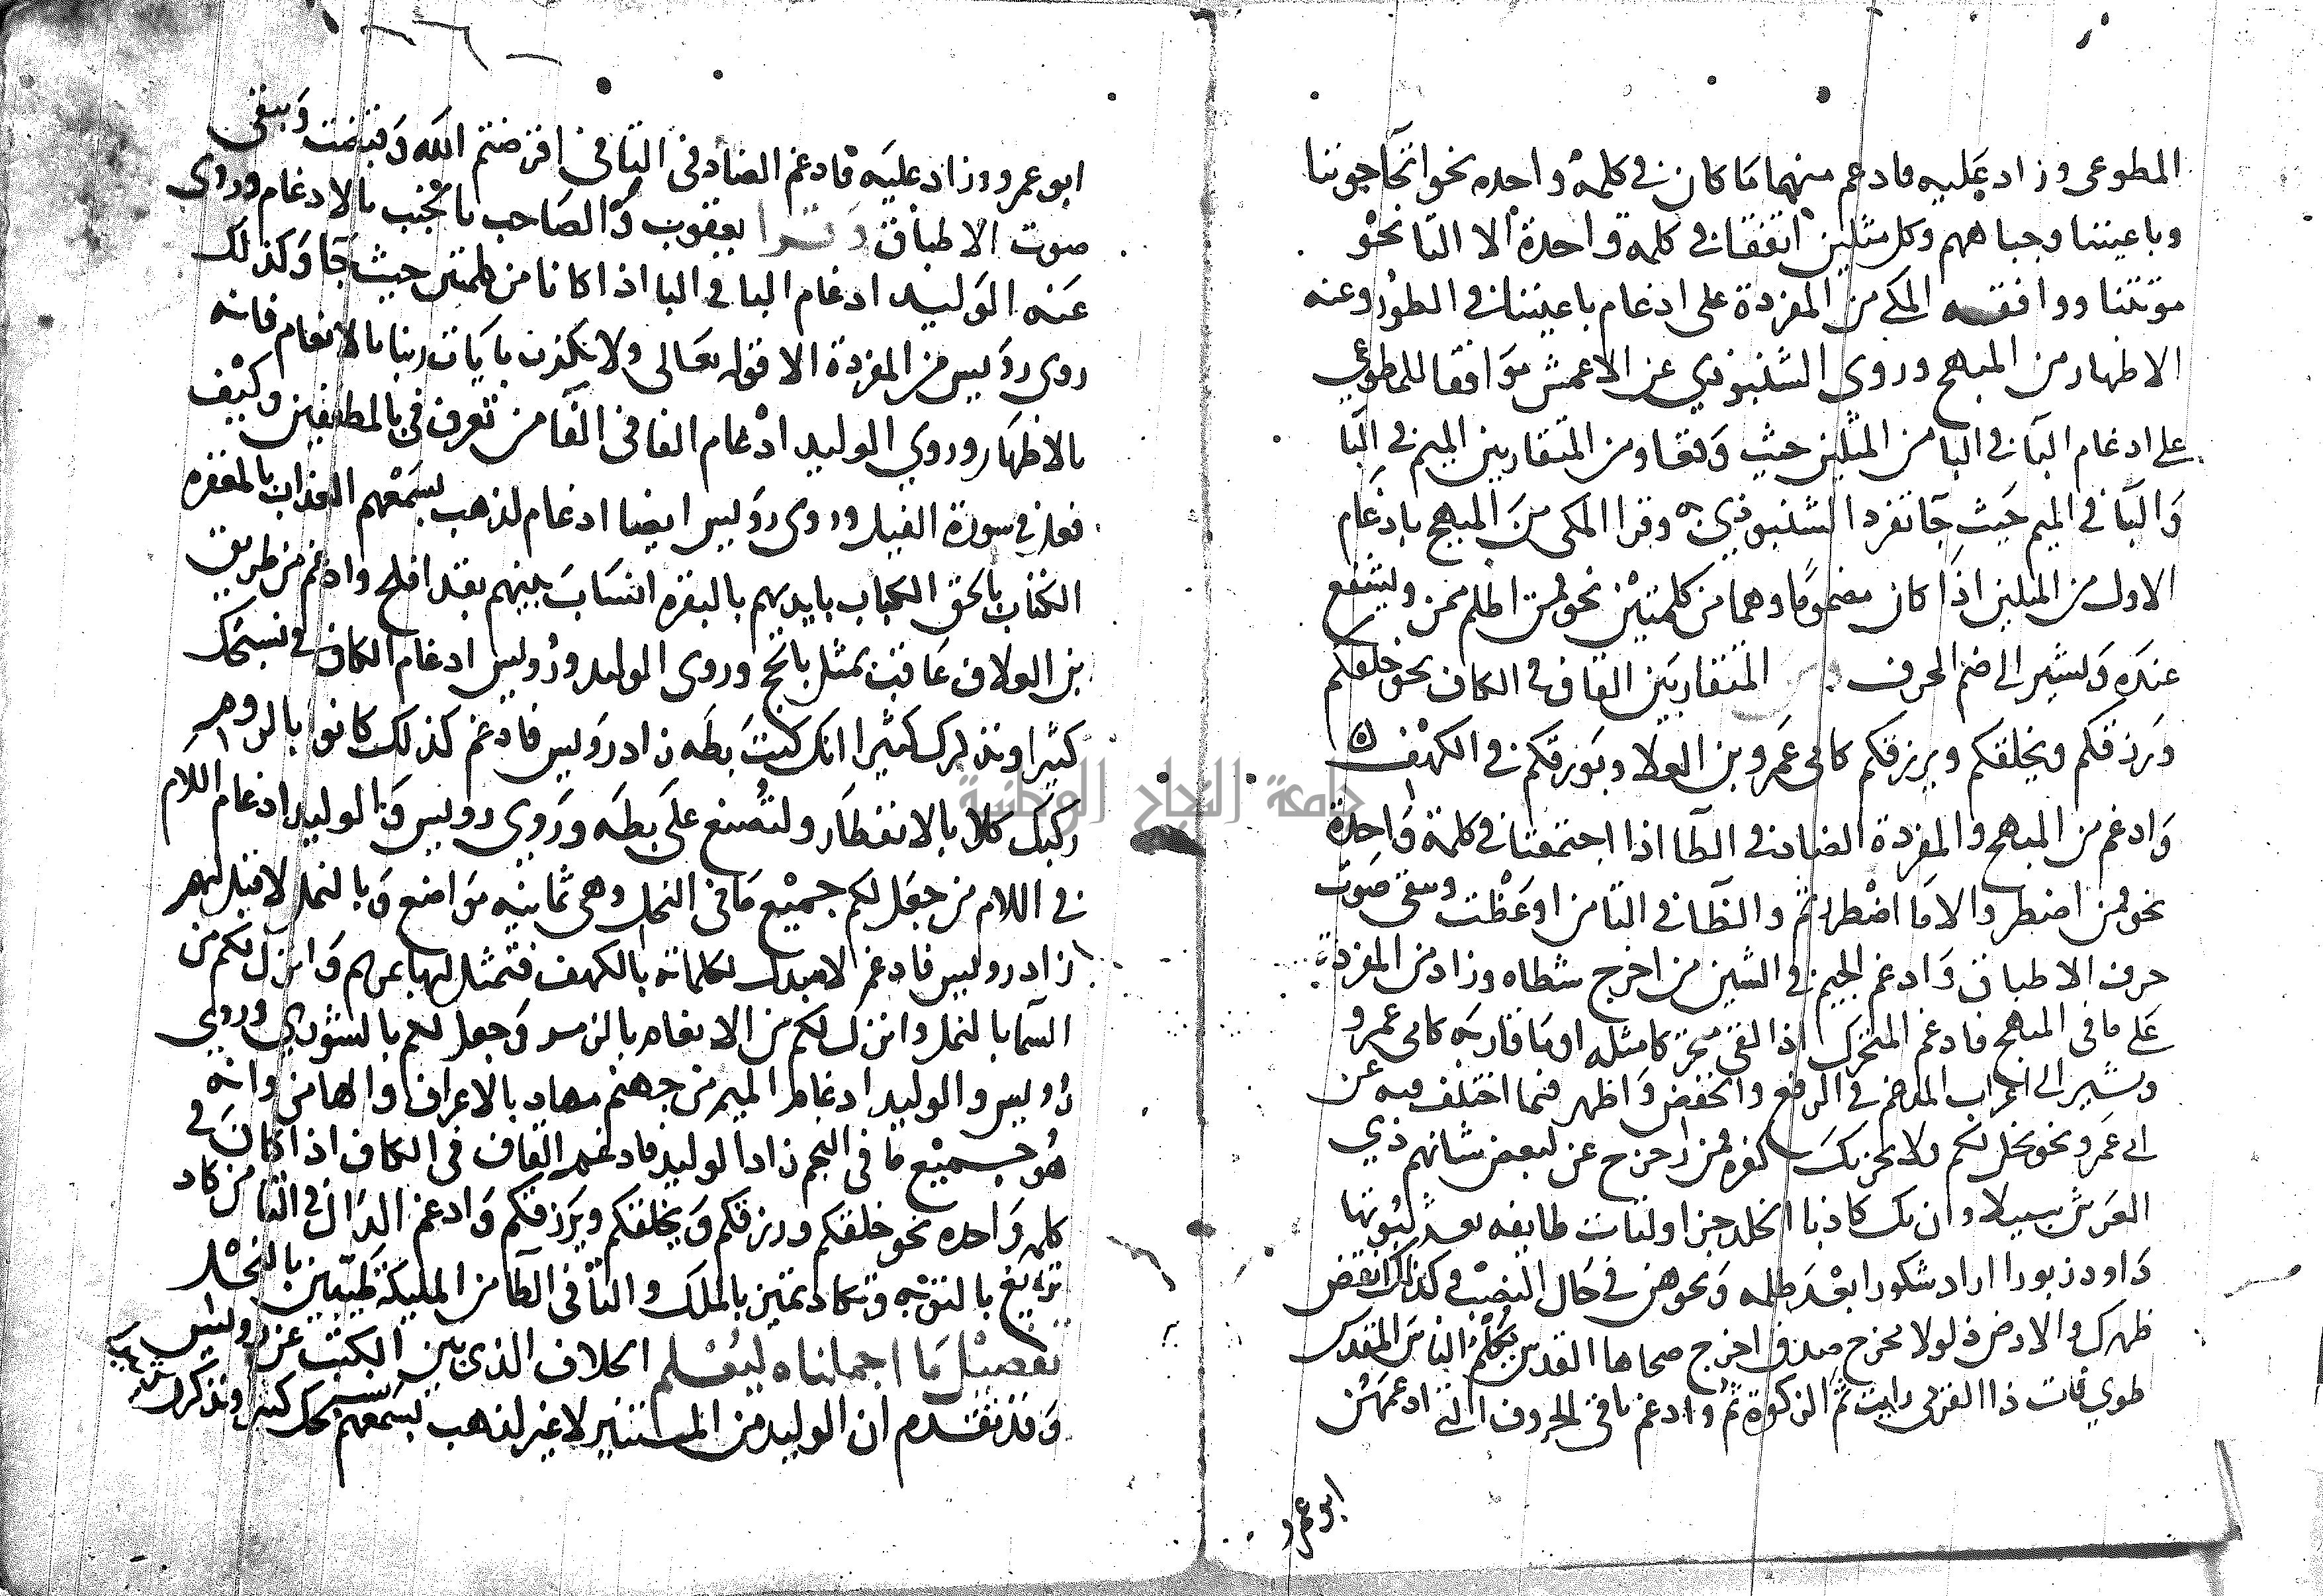 المطوعى وزاد عليه فادعم منهما ما كان في كلمة واحده نحو اتحاجوننا
وباعيننا وجباههم وكل مثلين اتفقا في كلمه واحدة الا التا نحو
موتتنا ووافقه المكي من المفردة على ادغام باعيننا في الطور وعنه
الاظهار من المبهج وروى الشنبوذي عن الاعمش موافقا للمطوعي
على ادغام البا في البا من المثلين حيث وقعا ومن المتقاربين الميم في البا
والبا في الميم حيث جا تفرد الشنبوذي به وقرا المكى من المبهج بادغام
الاول من المثلين اذا كان مضموما وهما من كلمتين نحو فمن اظلم ممن ويشفع
عنده ويشير الى ضم الحرف المتقاربين القاف في الكاف نحو خلقكم
ورزقكم ويخلقكم ويرزقكم كابى عمرو بن العلا وبورقكم في الكهف
وادغم من المبهج والمفردة الضاد في الطا اذا اجتمعتا في كلمة واحدة
نحو فمن اضطر والا ما اضطررتم والظا في التا من اوعظت وبقى صوت
حرف الاطباق وادغم الجيم في الشين من اخرج شطاه وزاد من المفردة
على ما فى المبهج فادغم المتحرك اذا لقى متحركا مثله او مقاربه كابى عمرو
ويشير الى اعراب المدغم في الرفع والخفض واظهر فيما اختلف فيه عن
ابى عمرو نحو يخل لكم ولا يحزنك كفره فمن زحزح عن لبعض شانهم ذي
العرش سبيلا وان يك كاذبا الخلد جزا ولتات طايفه بعد ثبوتها
داود زبورا اراد شكورا بعد ظلمه ونحوهن في حال النصب وكذلك انقض
ظهرك والارض ذلولا مخرج صدق اخرج ضحاها القدس نكلم الناس المقدس
طوي فات ذا القربى رايت ثم الزكوة ثم وادغم باقي الحروف التي ادغمهن
ابو عمرو
ابو عمرو وزاد عليه فادغم الضاد في التا في اقرضتم الله وقبضت وبقى
صوت الاطباق وقرا يعقوب والصاحب بالجنب بالادغام وروى
عنه الوليد ادغام البا في البا اذا كانا من كلمتين حيث جا وكذلك
روى رويس من المفردة الا قوله تعالى ولا نكذب بايات ربنا بالانعام فانه
بالاظهار وروي الوليد ادغام الفا في الفا من تعرف في بالمطففين وكيف
فعل في سورة الفيل وروى رويس ايضا ادغام لذهب بسمعهم العذاب بالمغفره
الكتاب بالحق الكتاب بايديهم بالبقره انساب بينهم بقد افلح وادغم من طريق
بن العلاف عاقب بمثل بالحج وروى الوليد ورويس ادغام الكاف في نسبحك
كثيرا ونذكرك كثيرا انك كنت بطه زاد رويس فادغم كذلك كانوا بالروم
ركبك كلا بالانفطار ولتصنع على بطه وروى رويس والوليد ادغام اللام
في اللام من جعل لكم جميع ما في النحل وهى ثمانيه مواضع وبالنمل لا قبل لهم
زاد رويس فادغم لا مبدل لكلماته بالكهف فتمثل لها بمريم وانزل لكم من
السما بالنمل وانزل لكم من الانعام بالزمر وجعل لكم بالشوري وروي
رويس والوليد ادغام الميم من جهنم مهاد بالاعراف والها من وانه
هو جميع ما في النجم زاد الوليد فادغم القاف في الكاف اذا كان في
كلمه واحده نحو خلقكم ورزقكم ويخلقكم ويرزقكم وادغم الدال في التا من كاد
تزيغ بالتوبه وتكاد تميز بالملك والتا في الطا من المليكة طيبين بالنحل
تفصيل ما اجملناه ليعلم الخلاف الذي بين الكتب عن رويس
وقد تقدم ان الوليد من المستنير لا غير لذهب بسمعهم نسبحك كثيرا ونذكرك
جامعة النجاح الوطنية